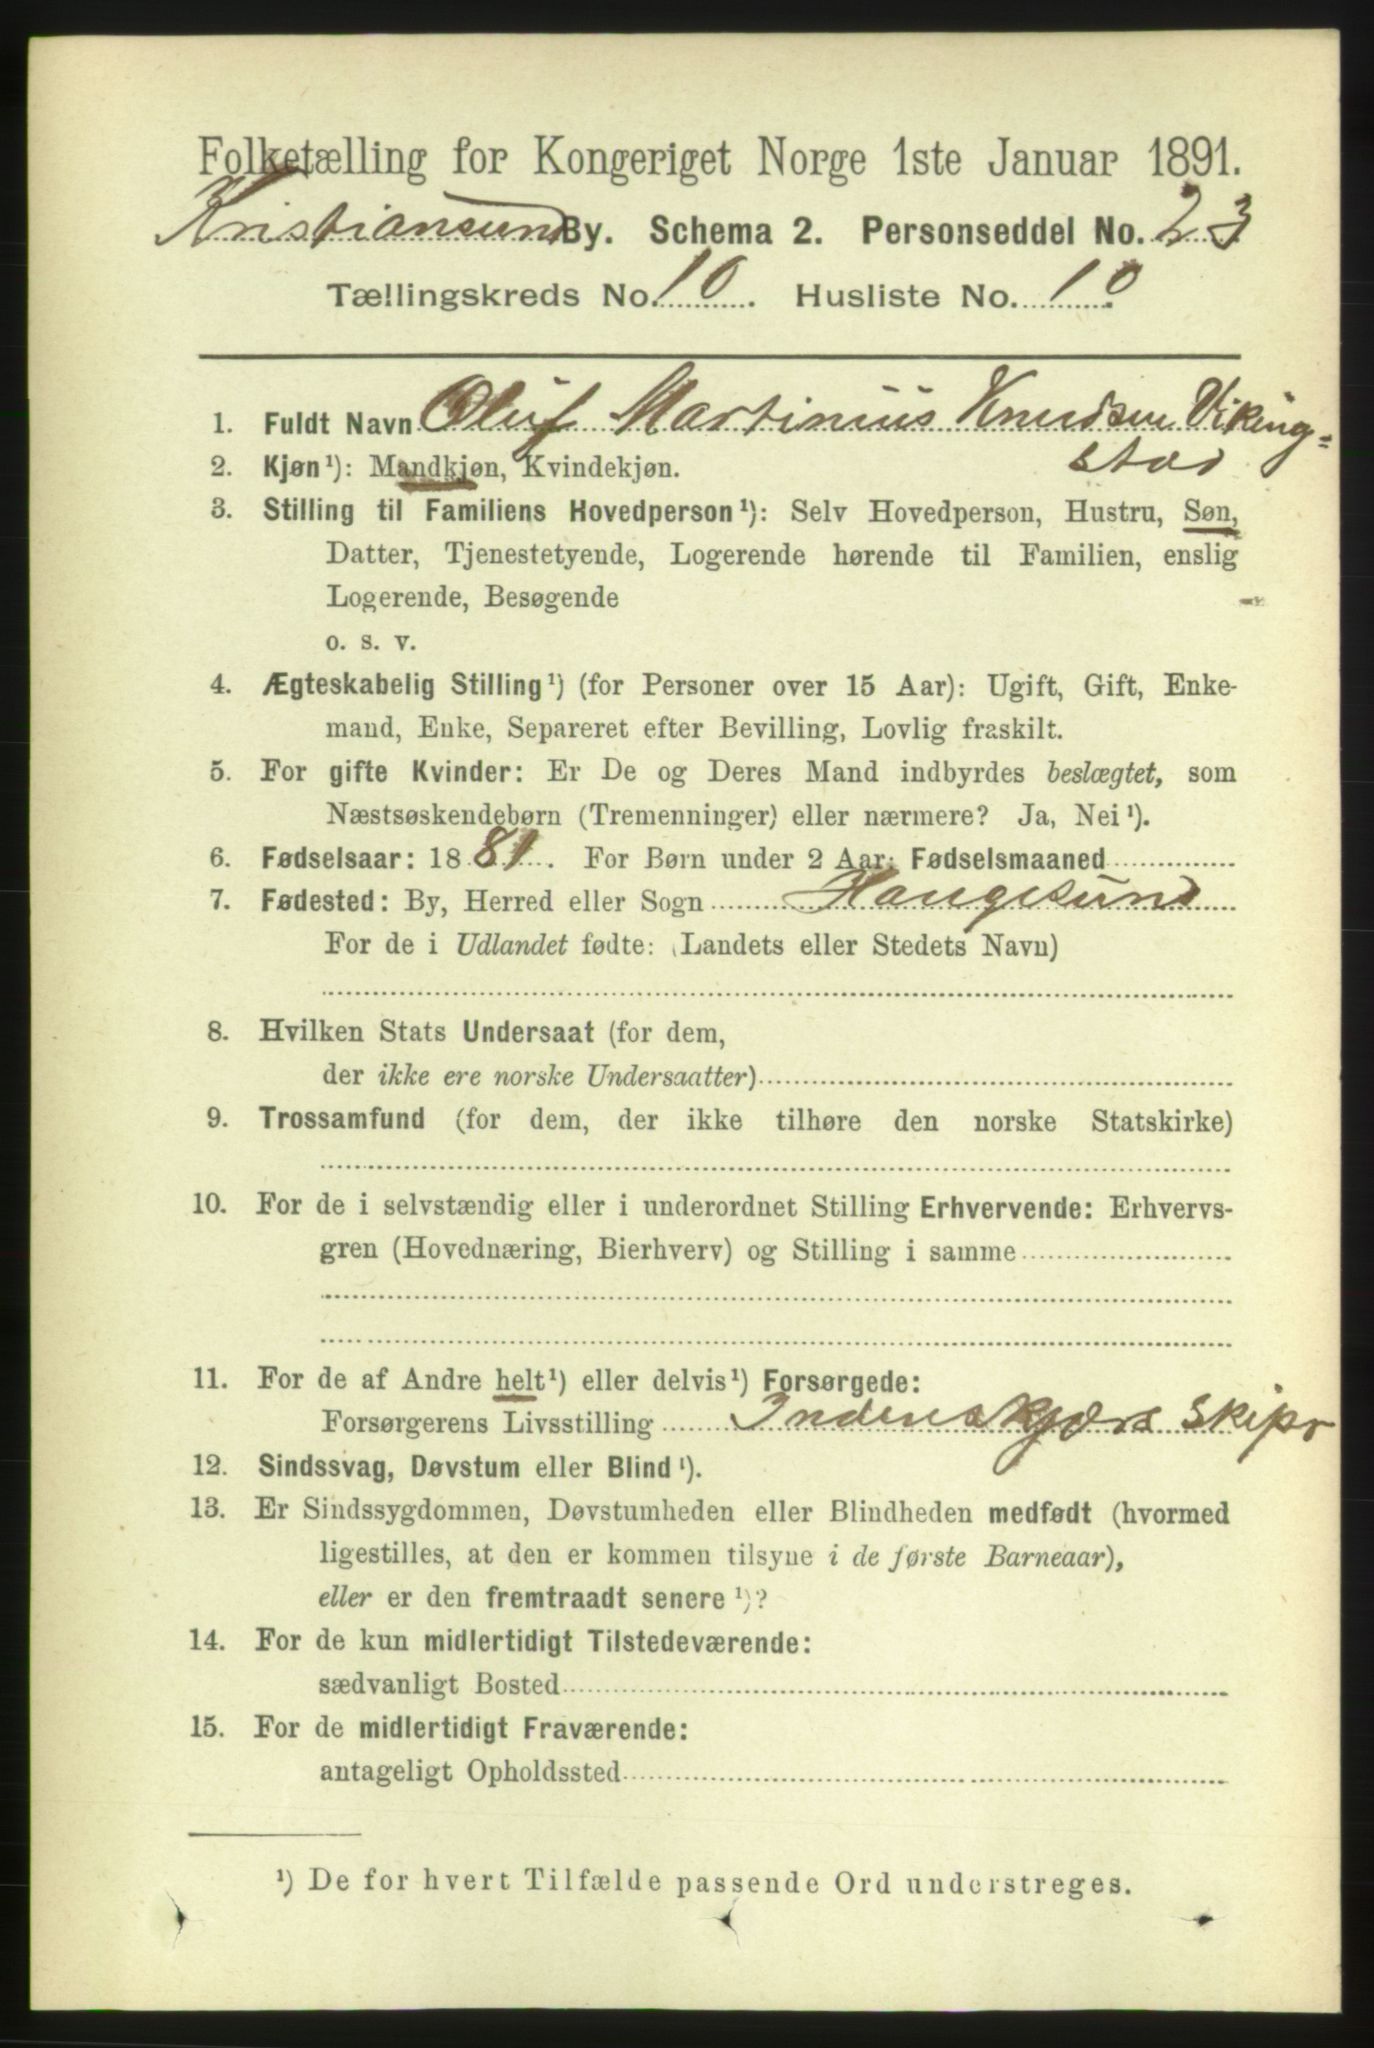 Folketælling for Kongeriget Norge 1ste Januar 1891.
Kristiansund By. Schema 2. Personseddel No. 23
Tællingskreds No. 10. Husliste No. 10
1. Fuldt Navn Oluf Martinius Knudsen Viking=
stad
2. Kjøn¹): Mandkjøn, Kvindekjøn.
3. Stilling til Familiens Hovedperson¹): Selv Hovedperson, Hustru, Søn,
Datter, Tjenestetyende, Logerende hørende til Familien, enslig
Logerende, Besøgende
o. s. v.
4. Ægteskabelig Stilling¹) (for Personer over 15 Aar): Ugift, Gift, Enke-
mand, Enke, Separeret efter Bevilling, Lovlig fraskilt.
5. For gifte Kvinder: Er De og Deres Mand indbyrdes beslægtet, som
Næstsøskendebørn (Tremenninger) eller nærmere? Ja, Nei¹).
6. Fødselsaar: 1881. For Børn under 2 Aar: Fødselsmaaned
7. Fødested: By, Herred eller Sogn Haugesund
For de i Udlandet fødte: (Landets eller Stedets Navn)
8. Hvilken Stats Undersaat (for dem,
der ikke ere norske Undersaatter)
9. Trossamfund (for dem, der ikke tilhøre den norske Statskirke)
10. For de i selvstændig eller i underordnet Stilling Erhvervende: Erhvervs-
gren (Hovednæring, Bierhverv) og Stilling i samme
11. For de af Andre helt¹) eller delvis¹) Forsørgede:
Forsørgerens Livsstilling Indenskjærs Skipr
12. Sindssvag, Døvstum eller Blind¹).
13. Er Sindssygdommen, Døvstumheden eller Blindheden medfødt (hvormed
ligestilles, at den er kommen tilsyne i de første Barneaar),
eller er den fremtraadt senere¹)?
14. For de kun midlertidigt Tilstedeværende:
sædvanligt Bosted
15. For de midlertidigt Fraværende:
antageligt Opholdssted
¹) De for hvert Tilfælde passende Ord understreges.